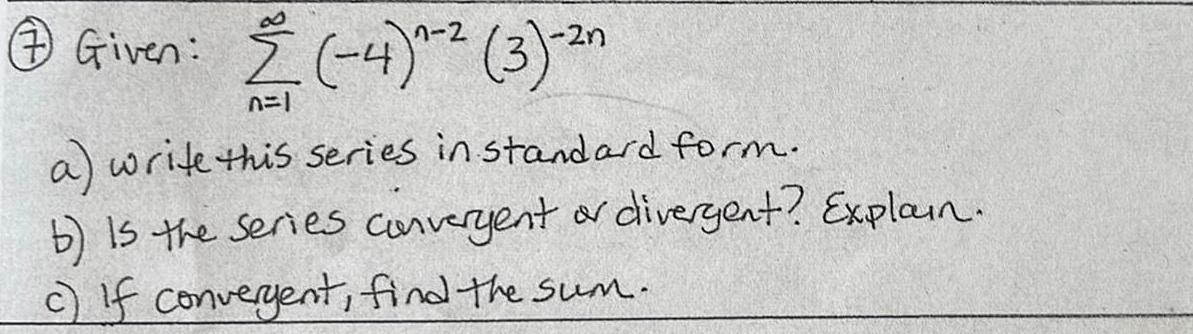 ⑦ Given: ∞∑n=1 (-4)^n-2 (3)^-2n
a) write this series in standard form.
b) Is the series convergent or divergent? Explain.
c) If convergent, find the sum.